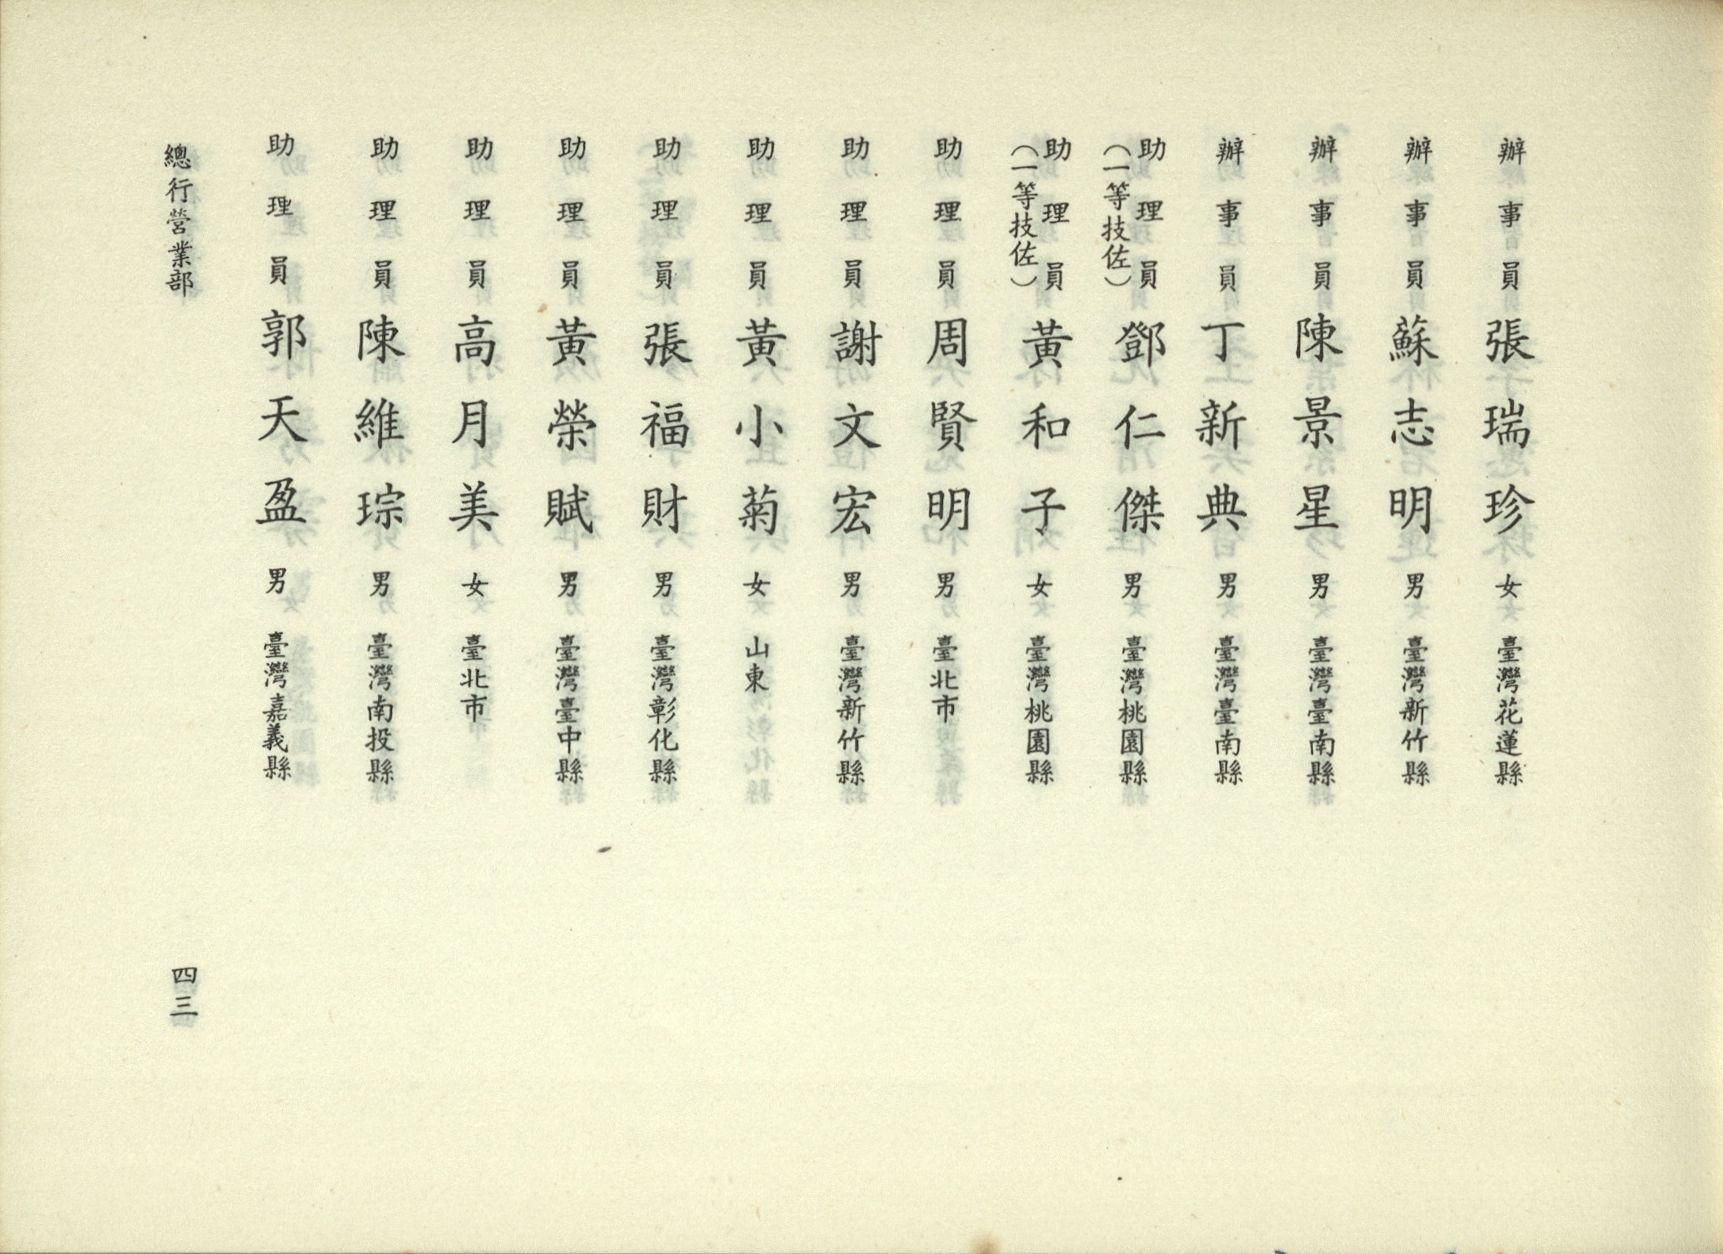 辦事員 張瑞珍 女 臺灣花蓮縣
辦事員 蘇志明 男 臺灣新竹縣
辦事員 陳景星 男 臺灣臺南縣
辦事員 丁新典 男 臺灣臺南縣
助理員(一等技佐) 鄧仁傑 男 臺灣桃園縣
助理員(一等技佐) 黃和子 女 臺灣桃園縣
助理員 周賢明 男 臺北市
助理員 謝文宏 男 臺灣新竹縣
助理員 黃小菊 女 山東
助理員 張福財 男 臺灣彰化縣
助理員 黃榮賦 男 臺灣臺中縣
助理員 高月美 女 臺北市
助理員 陳維琮 男 臺灣南投縣
助理員 郭天盈 男 臺灣嘉義縣
總行營業部
四三